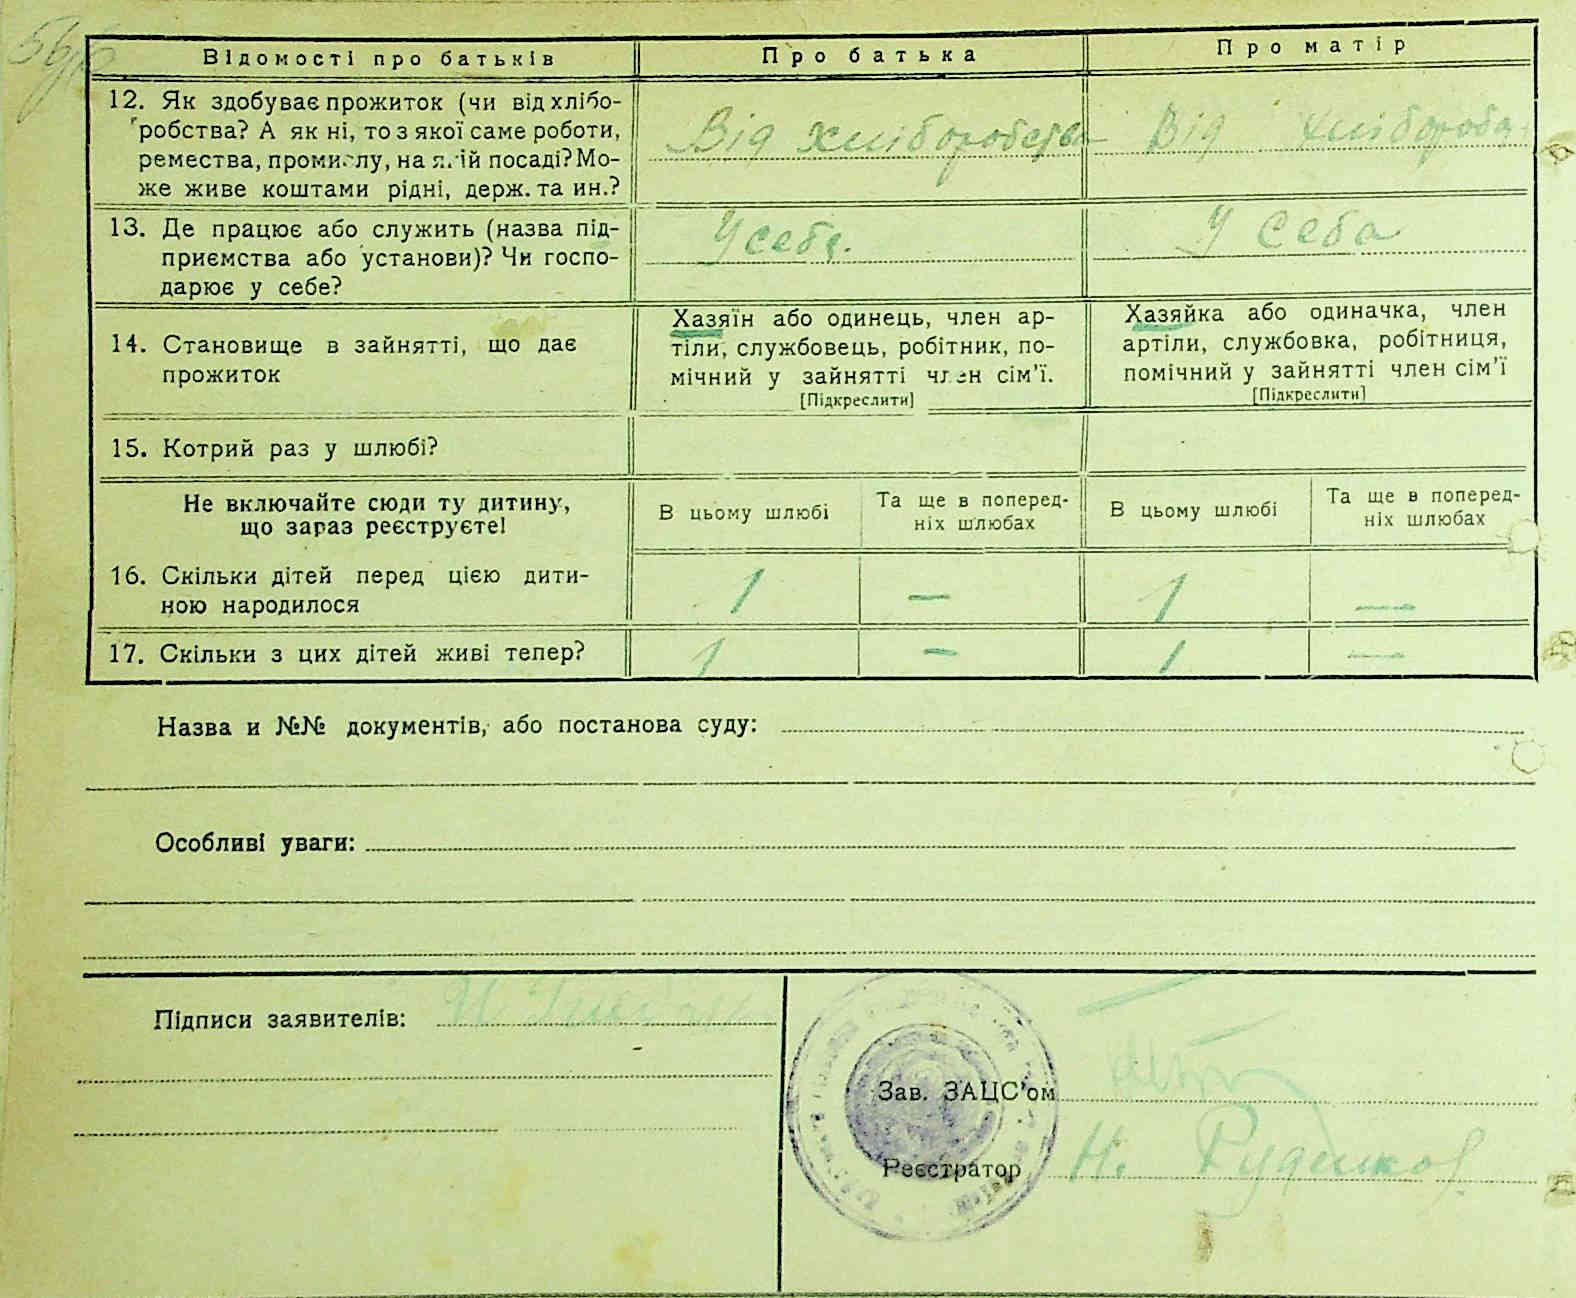 Відомості про батьків
Про батька
Про матір
12. Як здобуває прожиток (чи від хлібо-
робства? А як ні, то з якої саме роботи,
ремества, промислу, на якій посаді? Мо-
же живе коштами рідні, держ. та ин.?
Від хліборобства
Від хлібороб
13. Де працює або служить (назва під-
приємства або установи)? Чи госпо-
дарює у себе?
У себе.
У себа
14. Становище в зайнятті, що дає
прожиток
Хазяїн або одинець, член ар-
тіли, службовець, робітник, по-
мічний у зайнятті член сім’ї.
[Підкреслити]
Хазяйка або одиначка, член
артіли, службовка, робітниця,
помічний у зайнятті член сім’ї
[Підкреслити]
15. Котрий раз у шлюбі?
Не включайте сюди ту дитину,
що зараз реєструєте!
В цьому шлюбі
Та ще в поперед-
ніх шлюбах
В цьому шлюбі
Та ще в поперед-
ніх шлюбах
16. Скільки дітей перед цією дити-
ною народилося
1 — 1 —
17. Скільки з цих дітей живі тепер?
1 — 1 —
Назва и №№ документів, або постанова суду:
Особливі уваги:
Підписи заявителів:
Зав. ЗАЦС’ом
Реєстратор Н. Руденков